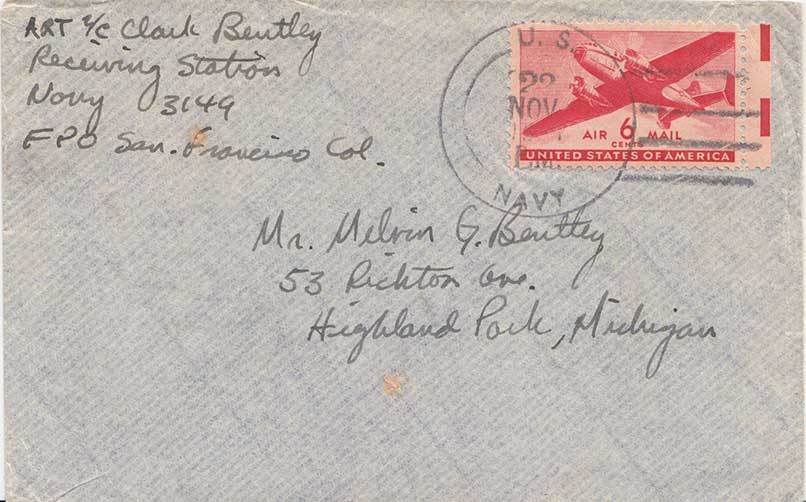 ART 1/c Clark Bentley
Receiving Station
Navy 3149
FPO San. Francisco Cal.
U. S.
22
NOV
P.M.
NAVY
AIR 6 MAIL
CENTS
UNITED STATES OF AMERICA
Mr. Melvin G. Bentley
53 Richton Ave.
Highland Park, Michigan